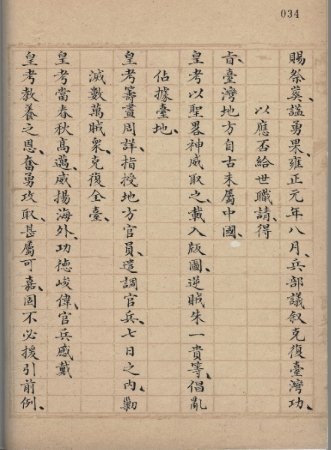 034
賜祭葬謚勇果、雍正元年八月、兵部議叙克復臺灣功、
以應否給世職請得
旨、臺灣地方自古未屬中國、
皇考以聖畧神威取之、載入版圖、逆賊朱一貴等、倡亂
佔據臺地、
皇考籌畫周詳、指授地方官員、遣調官兵、七日之內、勦
滅數萬賊衆、克復全臺、
皇考當春秋高邁、威揚海外、功德峻偉、官兵感戴
皇考教養之恩、奮勇攻取、甚屬可嘉、因不必援引前例、